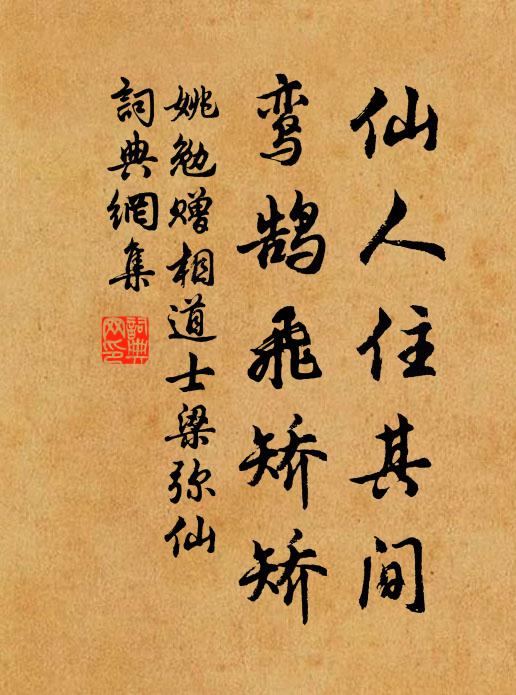 仙人住其间
鸾鹄飞矫矫
姚勉赠相道士梁弥仙
詞典網集
詞典
网印